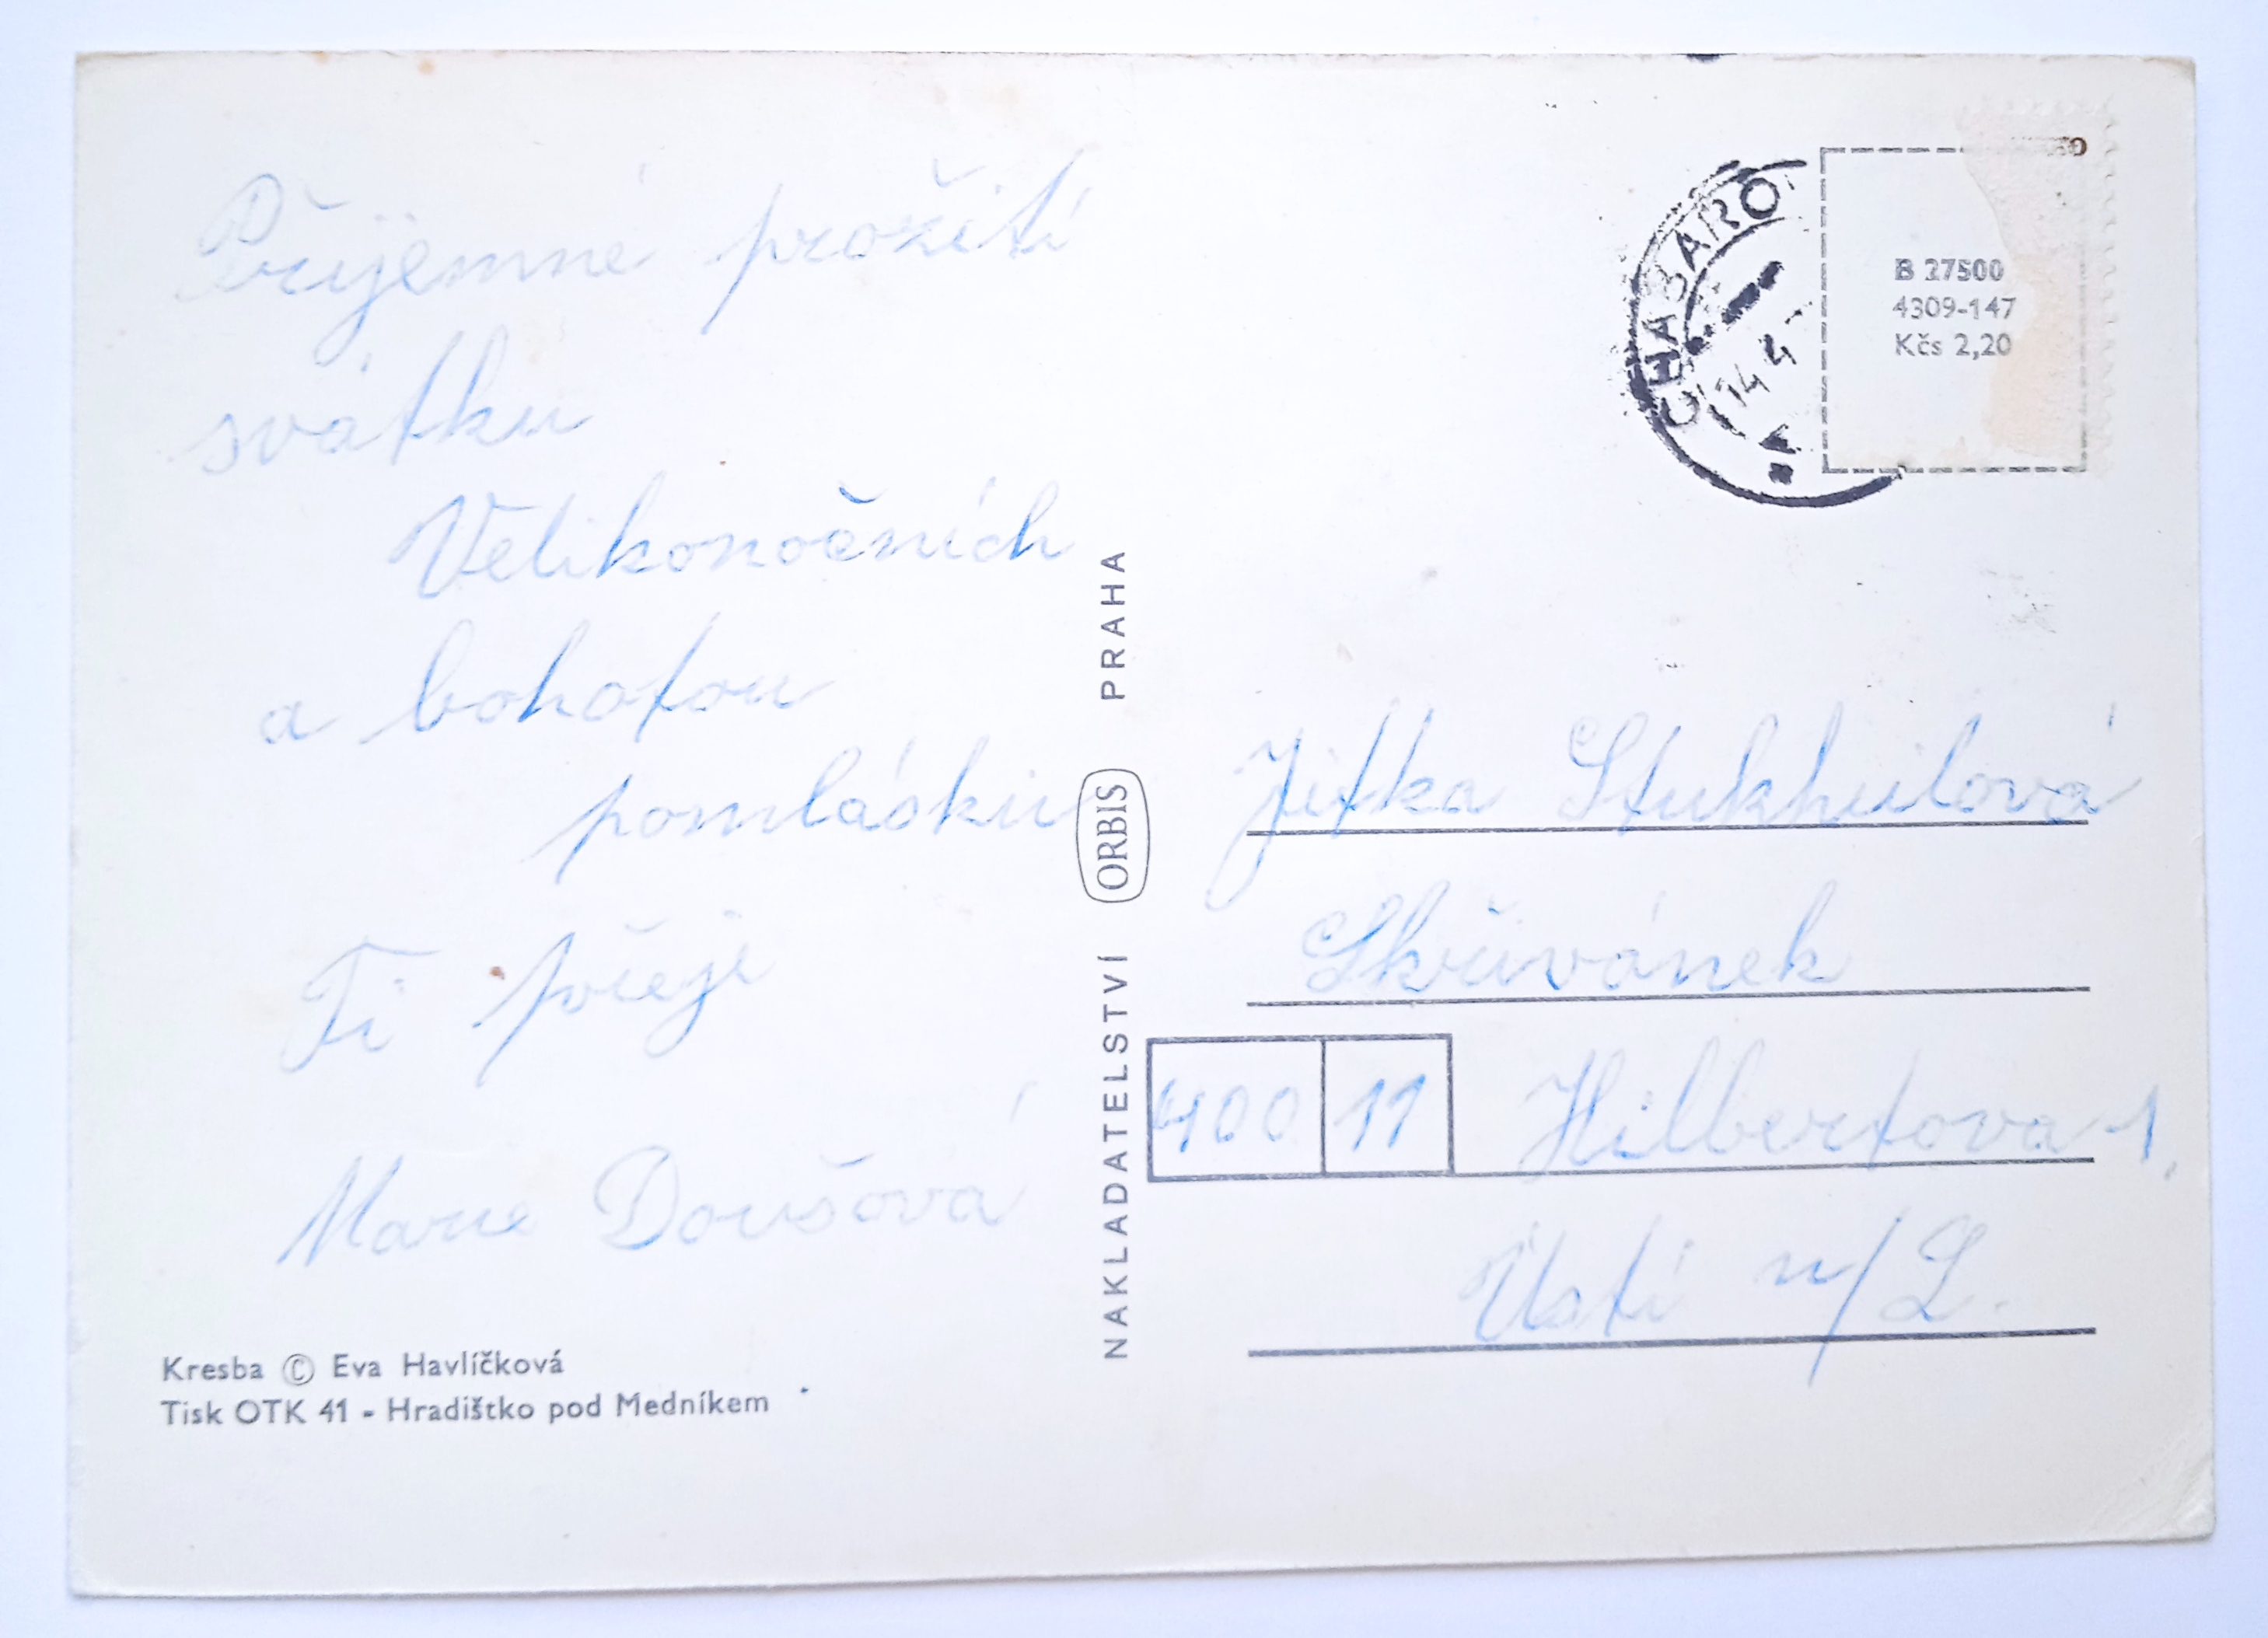 Příjemné prožití
svátku
Velikonočních
a bohatou
pomlásku
Ti přeje
Marie Doušová
Kresba © Eva Havlíčková
Tisk OTK 41 - Hradištko pod Medníkem
NAKLADATELSTVÍ ORBIS PRAHA
CHABAŘO
14 4
B 27500
4309-147
Kčs 2,20
Jitka Stukheilová
Skřivánek
400 11 Hilbertova 1,
Ústí n/L.